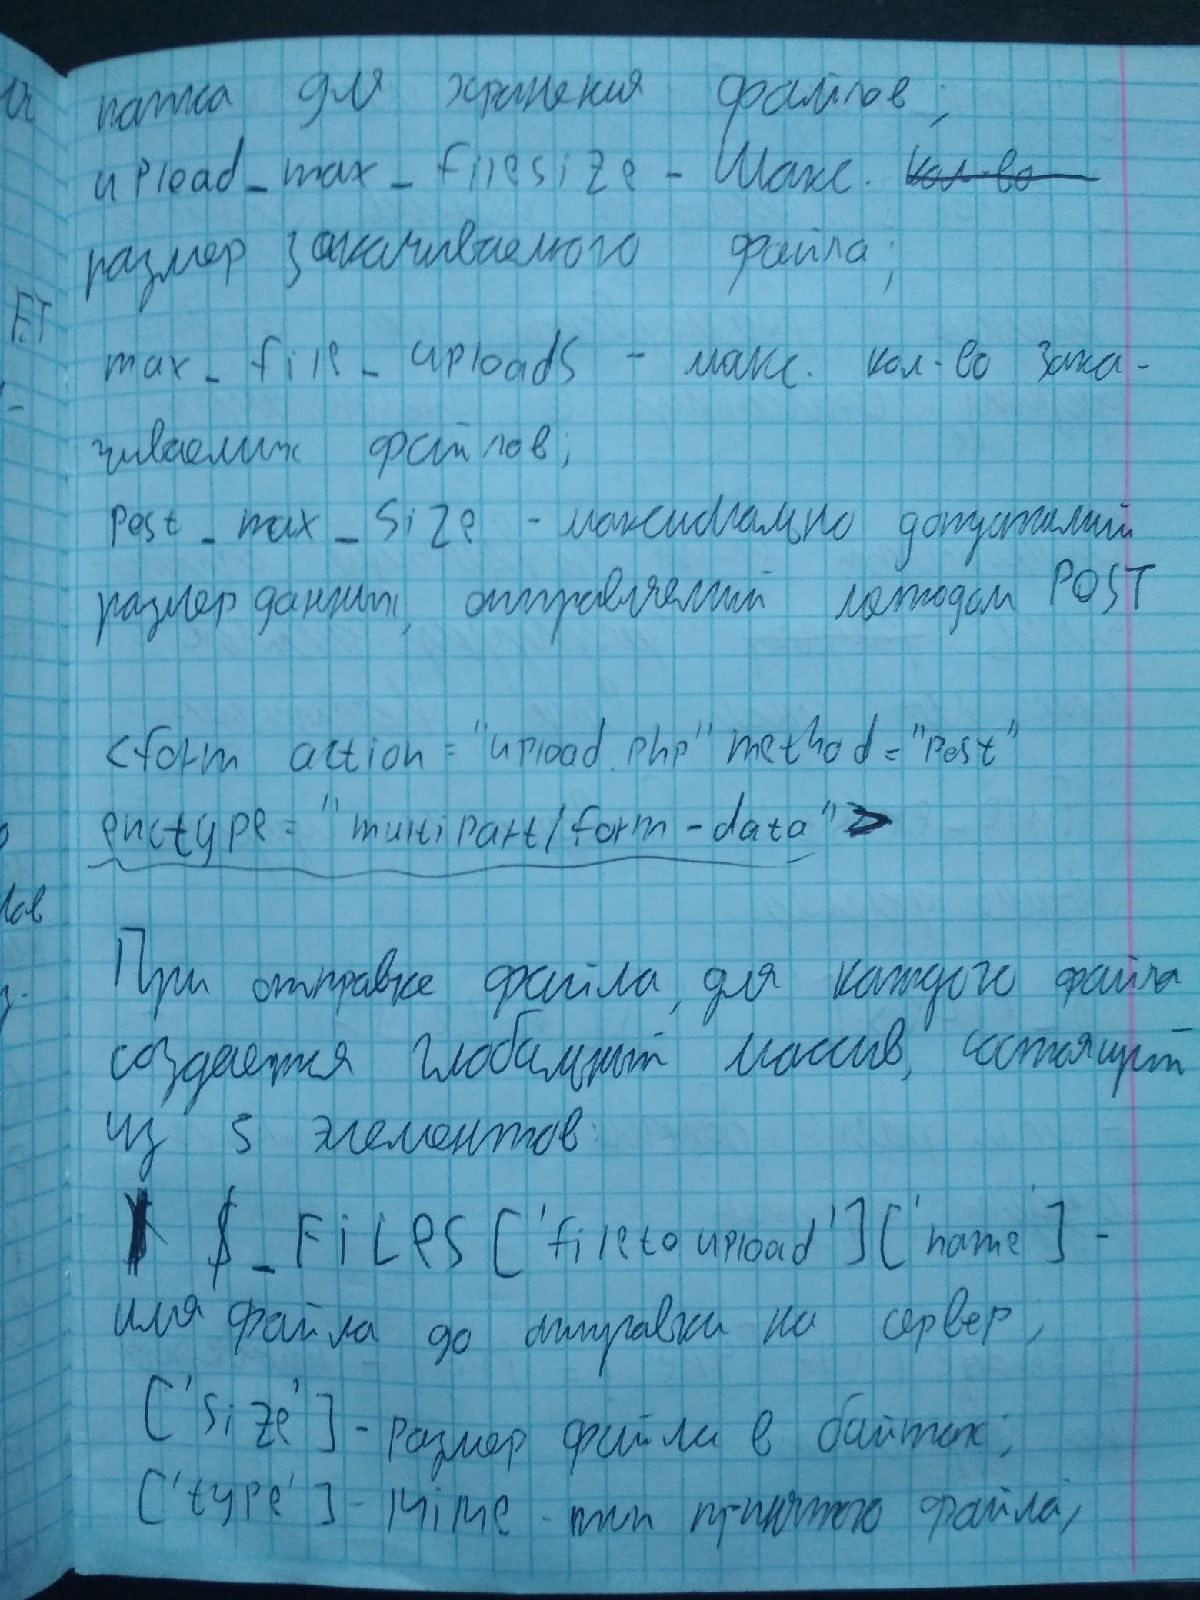 папка для хранения файлов;
upload_max_filesize - Макс. кол-во
размер закачиваемого файла;
max_file_uploads - макс. кол-во зака-
чиваемых файлов;
post_max_size - максимально допустимый
размер данных, отправляемый методом POST
<form action = "upload.php" method = "post"
enctype = "multipart/form-data">
При отправке файла, для каждого файла
создается глобальный массив, состоящий
из 5 элементов:
$_FILES ['filetoupload']['name'] -
имя файла до отправки на сервер;
['size'] - размер файла в байтах;
['type'] - Mime - тип принятого файла;